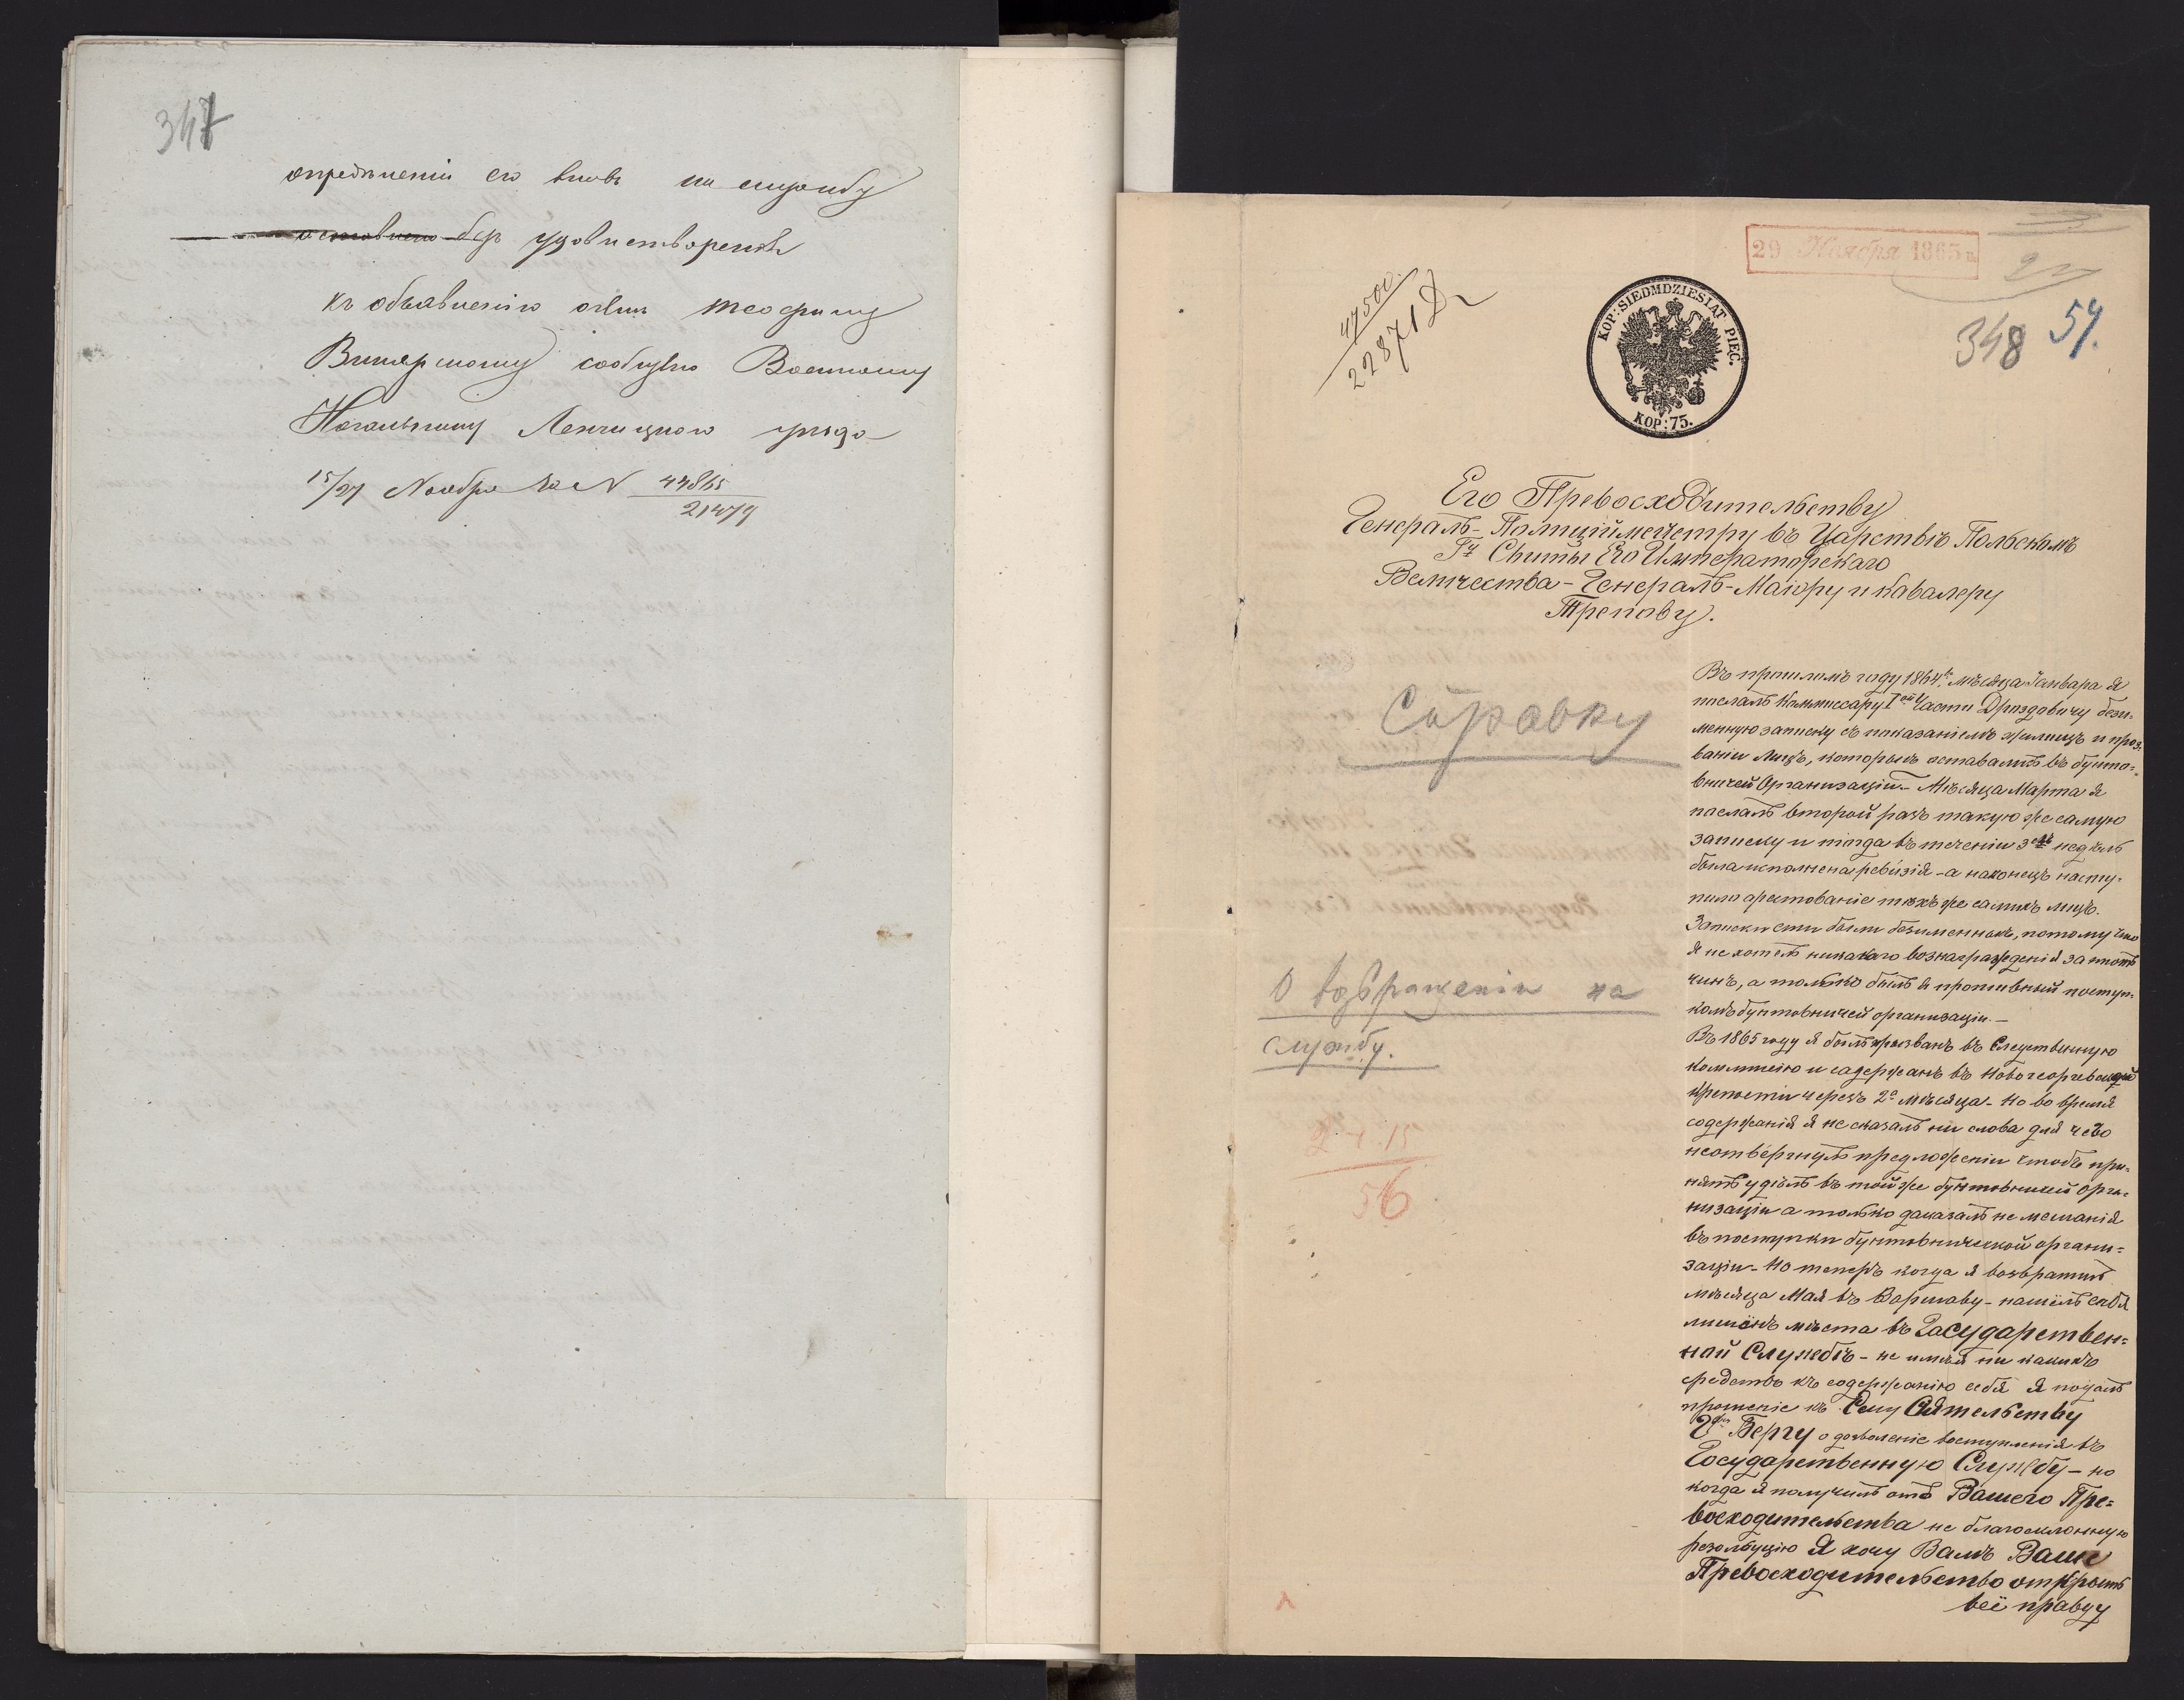 347
опредѣленіи его вновь на службу
оставлено безъ удовлетворенія
къ объявленію отцу Теофилу
сообщено Военному
Начальнику Ленчицкаго уѣзда
15/27 Ноября за N 44865
21479
29 Ноября 1865 г.
348 54.
47500
22871
KOP: SIEDMDZIESIĄT PIĘĆ.
KOP: 75.
Его Превосходительству
Генералъ-Полиціймейстру въ Царствѣ Польскомъ
Гну Свиты Его Императорскаго
Величества - Генералъ-Маіору и Кавалеру
Трепову.
Справку
О возвращеніи на
службу.
56
Въ прошломъ году 1864 мѣсяца Января я
послалъ Коммиссару Iой Части Дроздовичу безы=
менную записку съ показаніемъ жилищъ и проз=
ваніи лицъ, которыхъ оставались въ бунто=
вничей Организаціи. Мѣсяца Марта я
послалъ второй разъ такую же самую
записку и тогда въ теченіи 3ехъ недѣль
была исполнена ревизія - а наконецъ насту=
пило арестованіе тѣхъ же самыхъ лицъ.
Записки были безименныхъ, потому что
я не хотѣлъ никакаго вознагражденія за тотъ
чинъ, а только былъ я противный поступ=
камъ бунтовничей организаціи.—
Въ 1865 году я былъ призванъ въ Следственную
Коммисію и садержанъ въ Новогеоргіевской
Крепости черезъ 2а мѣсяца - Но во время
содержанія я не сказалъ ни слова для чево
неотвергнулъ предложеніи чтобъ при=
нять удѣлъ въ той же бунтовничей Орга=
низаціи а только даказалъ не мешанія
въ поступки бунтовнической органи=
заціи - Но теперъ когда я возвратилъ
мѣсяца Мая въ Варшаву - нашелъ себя
лишёнъ мѣста въ Государствен=
ной Службѣ - не имѣя ни какихъ
средствъ къ содержанію себя я подалъ
прошеніе къ Сіятельству
Бергу о дозволеніе воступленія въ
Государственную Службу - но
когда я получилъ отъ Вашего Пре=
восходительства не благосклонную
резолюцію Я хочу Вамъ Ваше
Превосходительство открыть
всё правду